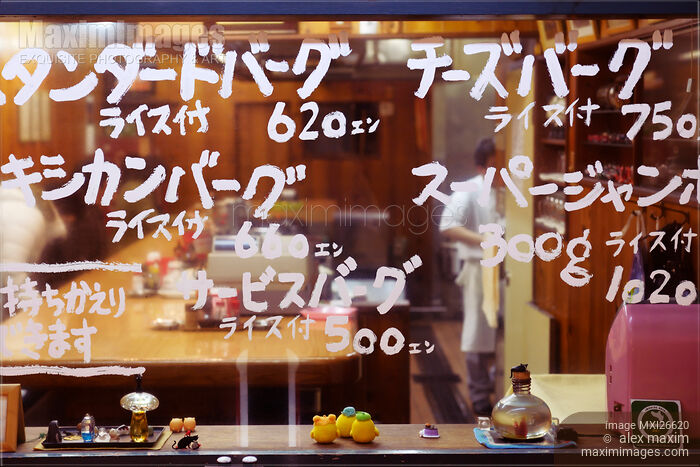 MaximImages
EXQUISITE PHOTOGRAPHY & ART
スタンダードバーグ
ライス付 620エン
チーズバーグ
ライス付 750
キシカンバーグ
ライス付 660エン
スーパージャンボ
300g ライス付
1020
サービスバーグ
ライス付 500エン
持ちかえり
できます
maximimages.com
image MXI26620
© alex maxim
maximimages.com